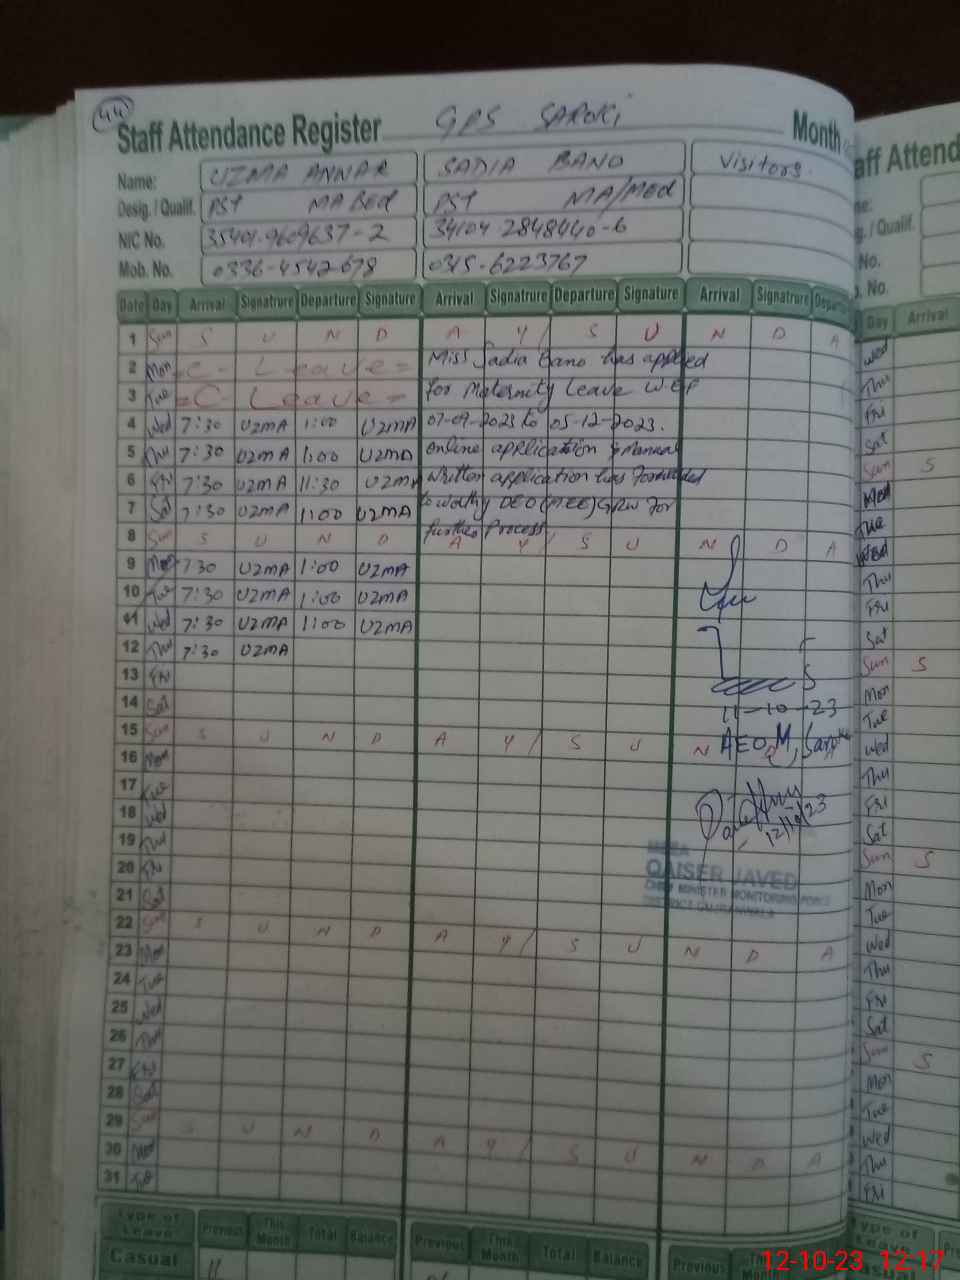 44
Staff Attendance Register GPS SAROKI Month
Name: UZMA ANNAR SADIA BANO Visitors.
Desig. / Qualif. PST MA BEd PST MA/MEd
NIC No. 35401-9609637-2 34104-2848440-6
Mob. No. 0336-4542678 0315-6223767
Date Day Arrival Signatrure Departure Signature Arrival Signatrure Departure Signature Arrival Signatrure Departu
1 Sun S U N D A Y / S U N D A
2 Mon =C- Leave= Miss Sadia Bano has applied
3 Tue =C- Leave= for Maternity Leave W.E.F
4 Wed 7:30 UZMA 1:00 UZMA 07-09-2023 to 05-12-2023.
5 Thu 7:30 UZMA 1:00 UZMA online application & Manual
6 Fri 7:30 UZMA 11:30 UZMA Written application has forwarded
7 Sat 7:30 UZMA 1:00 UZMA to worthy DEO (M.EE) GRW For
further Process
8 Sun S U N D A Y / S U N D A
9 Mon 7:30 UZMA 1:00 UZMA
10 Tue 7:30 UZMA 1:00 UZMA
11 Wed 7:30 UZMA 1:00 UZMA
12 Thu 7:30 UZMA
13 Fri
14 Sat
11-10-23
15 Sun S U N D A Y / S U N D A
AEO M
16 Mon
17 Tue
18 Wed
12/10/23
19 Thu
20 Fri
QAISER JAVED
CHIEF MINISTER MONITORING FORCE
DISTRICT GUJRANWALA
21 Sat
22 Sun S U N D A Y / S U N D A
23 Mon
24 Tue
25 Wed
26 Thu
27 Fri
28 Sat
29 Sun S U N D A Y / S U N D A
30 Mon
31 Tue
Type of Leave Previous This Month Total Balance Previous This Month Total Balance Previous This
Casual 11
aff Attend
me:
g. / Qualif.
No.
b. No.
Day Arrival
Wed
Thu
Fri
Sat
Sun S
Mon
Tue
Wed
Thu
Fri
Sat
Sun S
Mon
Tue
Wed
Thu
Fri
Sat
Sun S
Mon
Tue
Wed
Thu
Fri
Sat
Sun S
Mon
Tue
Wed
Thu
Fri
12-10-23 12:17